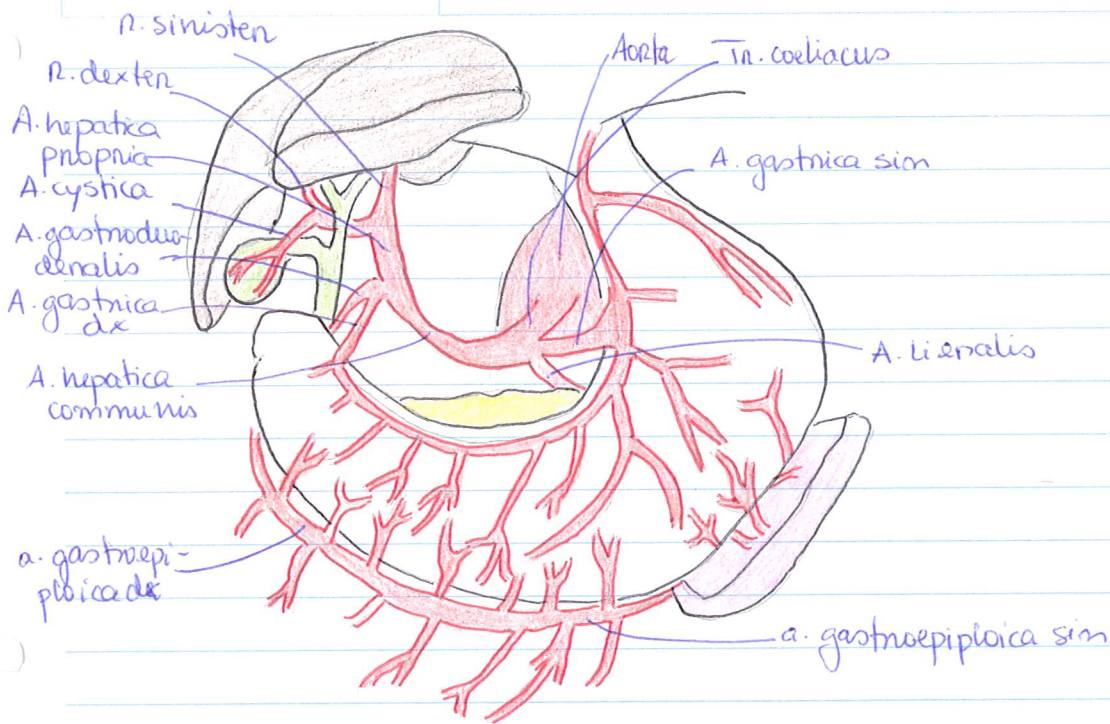 r. sinister
r. dexter
A. hepatica
propria
A. cystica
A. gastroduo-
denalis
A. gastrica
dx
A. hepatica
communis
a. gastroepi-
ploica dx
Aorta
Tr. coeliacus
A. gastrica sin
A. lienalis
a. gastroepiploica sin